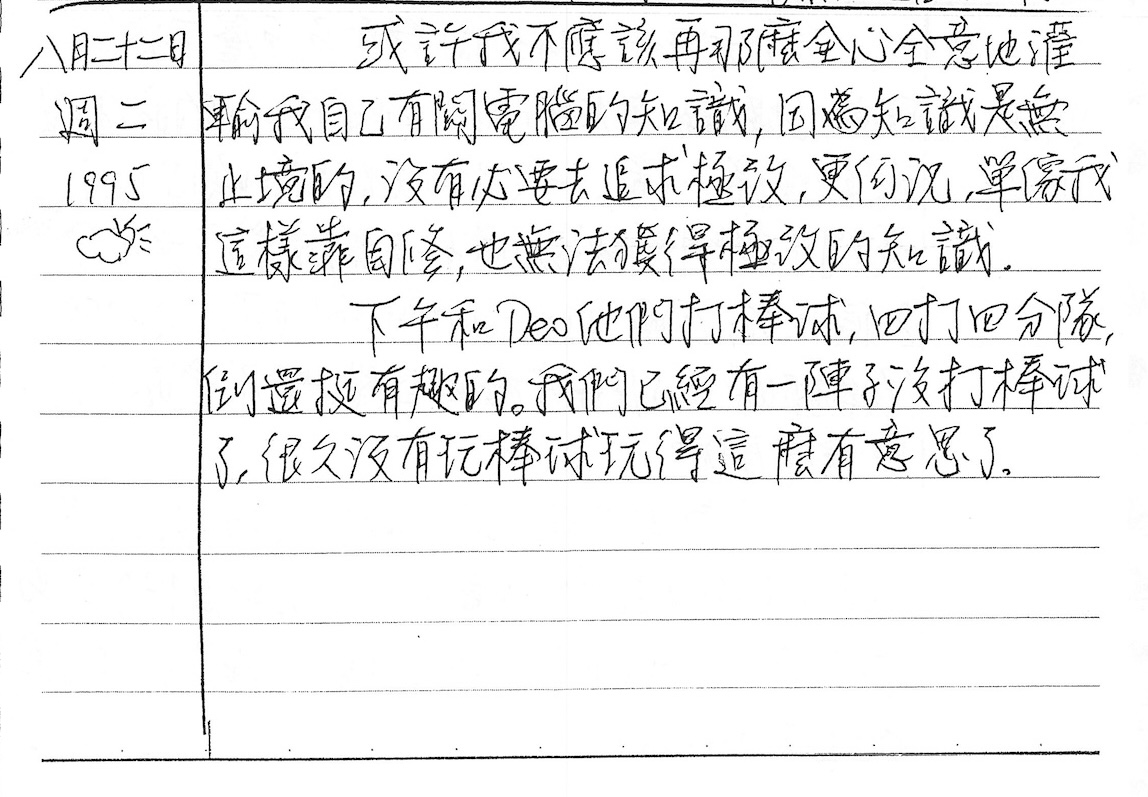 八月二十二日
週二
1995
或許我不應該再那麼全心全意地灌
輸我自己有關電腦的知識,因為知識是無
止境的,沒有必要去追求極致,更何況,單像我
這樣靠自修,也無法獲得極致的知識.
下午和Deo他們打棒球,四打四分隊,
倒還挺有趣的。我們已經有一陣子沒打棒球
了,很久沒有玩棒球玩得這麼有意思了。